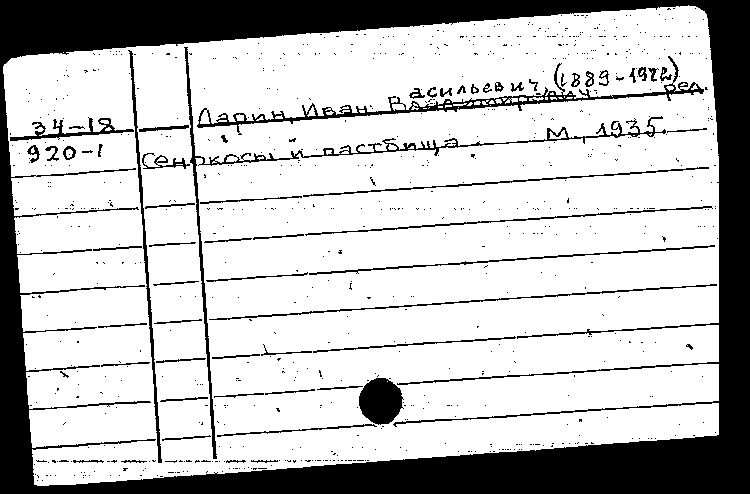 асильевич (1889-1972)
34-18 Ларин, Иван Владимирович ред.
920-1 Сенокосы и пастбища. М., 1935.